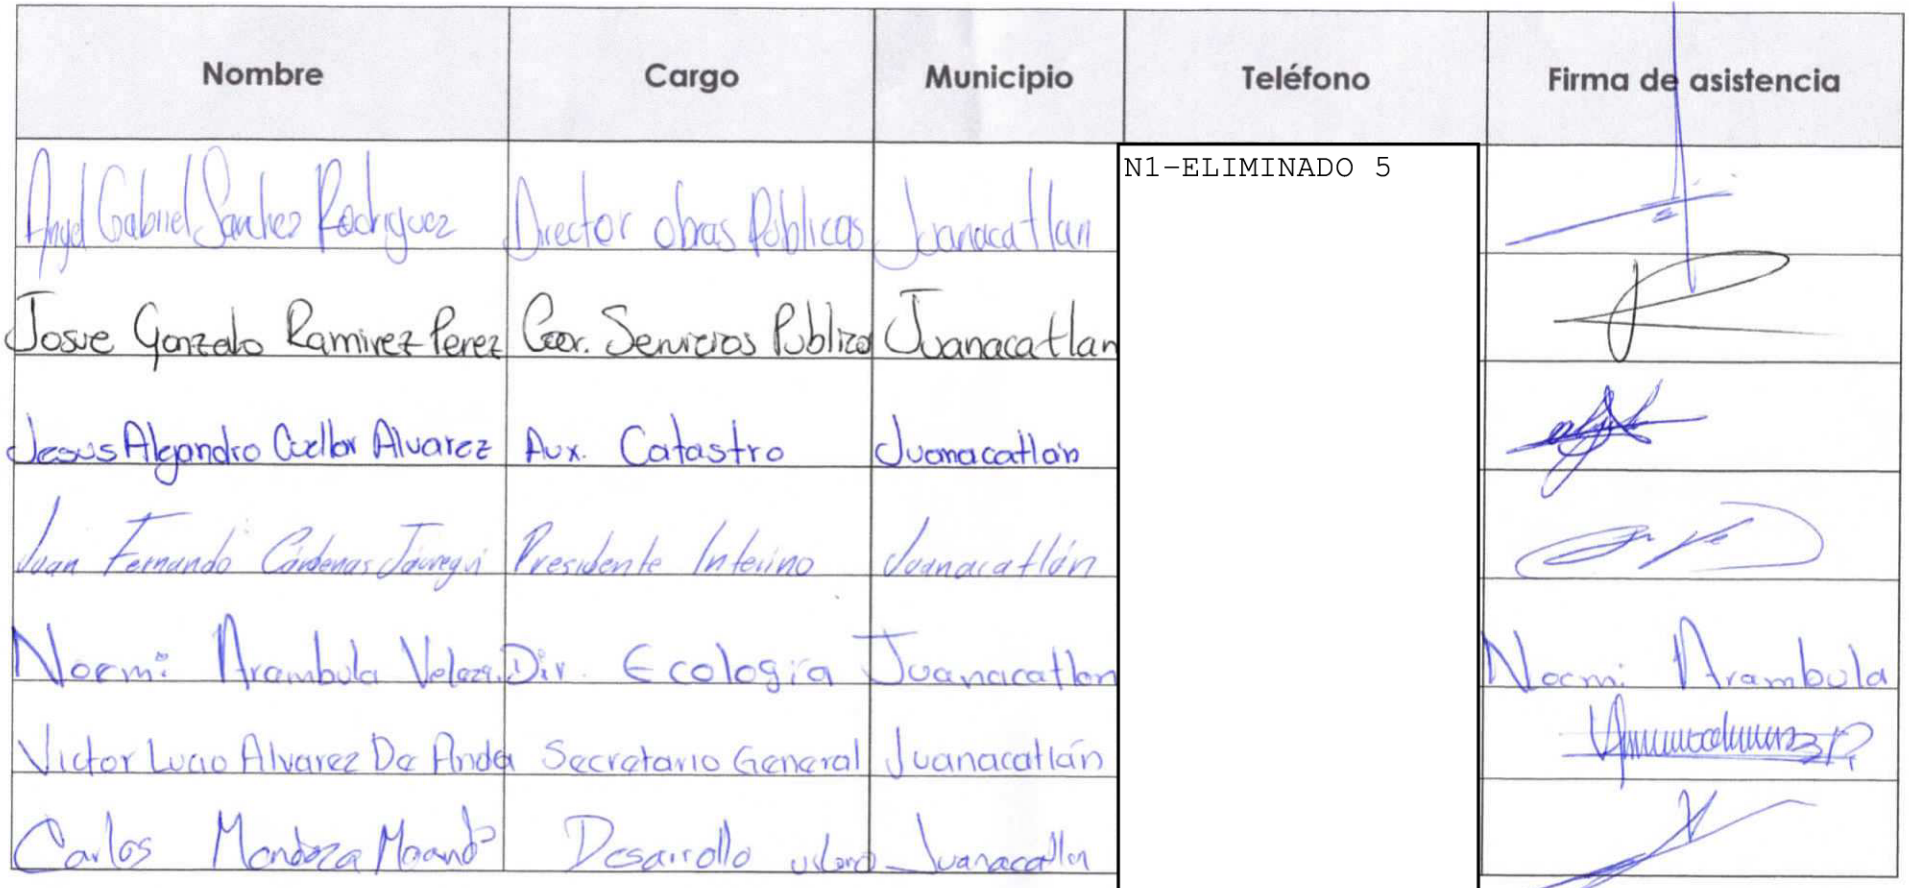 Nombre Cargo Municipio Teléfono Firma de asistencia
N1-ELIMINADO 5
Angel Gabriel Sanchez Rodriguez Director obras Públicas Juanacatlan
Josue Gonzalo Ramirez Perez Coor. Servicios Publico Juanacatlan
Jesus Alejandro Cuellar Alvarez Aux. Catastro Juanacatlán
Juan Fernando Cárdenas Jáuregui Presidente Interino Juanacatlán
Noemi Arambula Dir. Ecología Juanacatlan Noemi Arambula
Victor Lucio Alvarez De Anda Secretario General Juanacatlán
Carlos Mendoza Desarrollo Juanacatlan